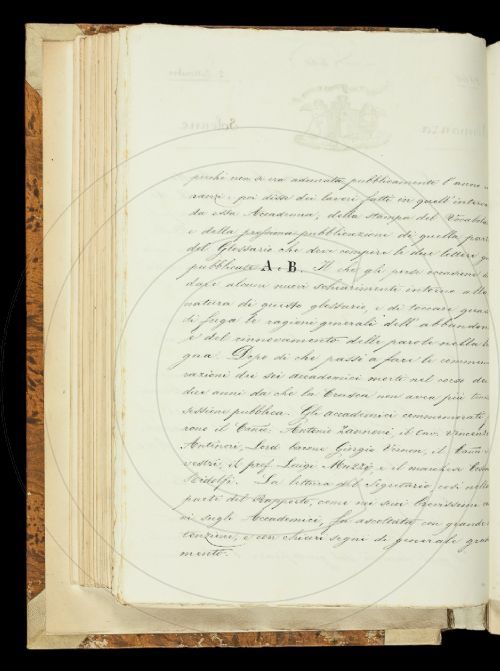 perchè non si era adunata pubblicamente l'anno
ranzi; poi disse dei lavori fatti in quell'interva
da essa Accademia, della stampa del Vocabola
e della prossima pubblicazione di quella part
del Glossario che deve compire le due lettere
pubblicate A e B. Il che gli porse occasione
dare alcuni nuovi schiarimenti intorno alla
natura di questo glossario, e di toccare quas
di fuga le ragioni generali dell'abbandon
e del rinnovamento delle parole nella
gua. Dopo di che passò a fare le commem
razioni dei sei accademici morti nel corso de
dieci anni da che la Crusca non avea più tenu
sessione pubblica. Gli accademici commemorati
rono il Cano. Antonio Zannoni, il Cav. Vincenzo
Antinori, Lord Barone Giorgio Vernon, il Cano
vestri, il prof. Luigi Muzzi, e il marchese Cosi
Ridolfi. La lettura del Segretario, così nella
parte del Rapporto, come nei suoi
ni sugli Accademici, fu ascoltata con grande
tenzione, e con chiari segni di generale grad
mento.